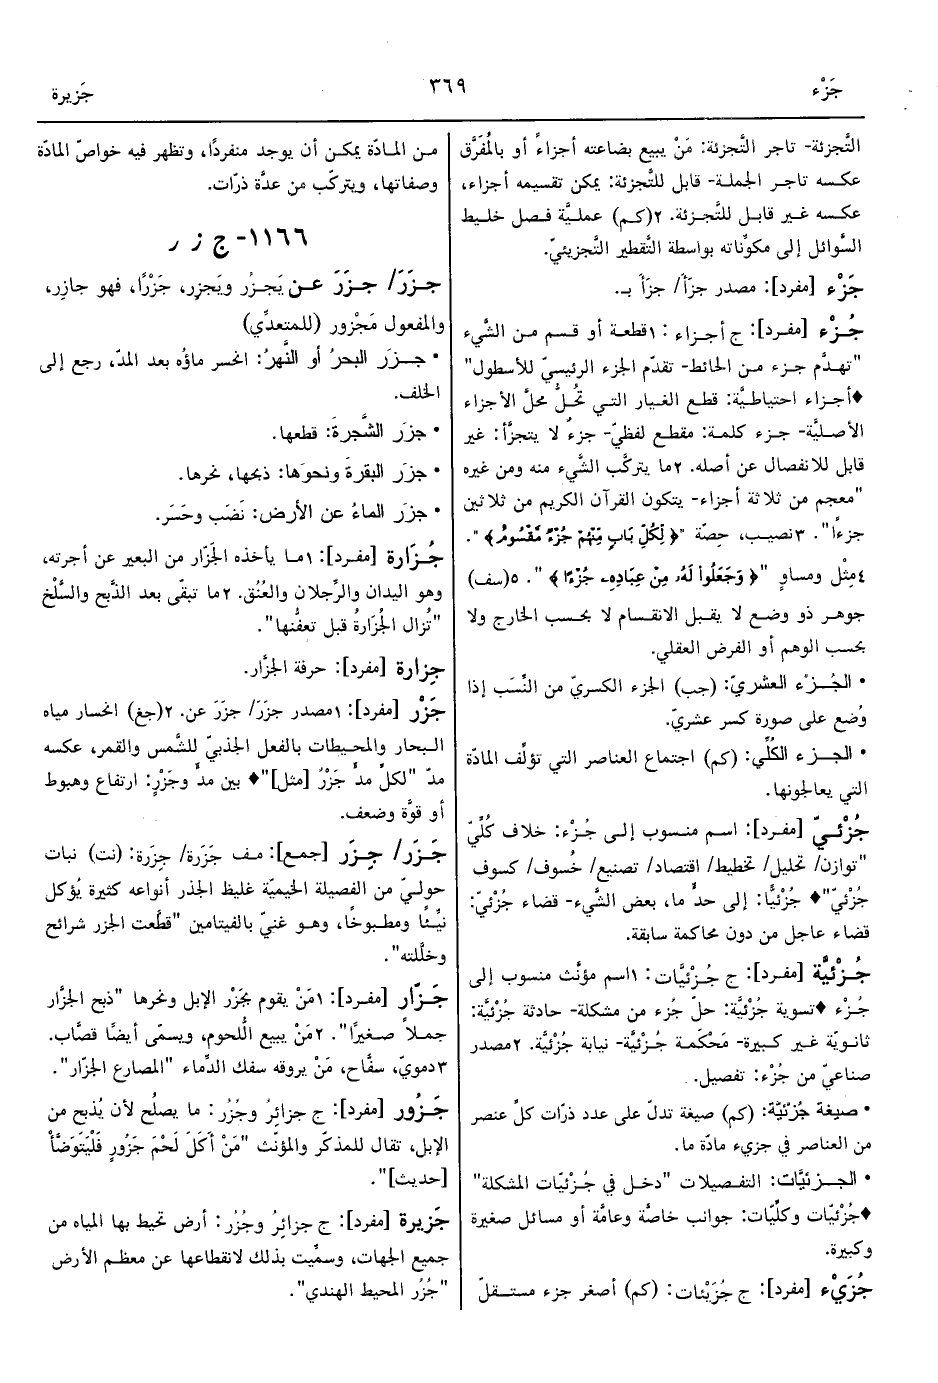 جَزْء
٣٦٩
جَزيرة
التَّجزئة- تاجر التَّجزئة: مَنْ يبيع بضاعته أجزاءً أو بالمُفَرَّق
عكسه تاجر الجملة- قابل للتَّجزئة: يمكن تقسيمه أجزاء،
عكسه غير قابل للتَّجزئة. ٢(كم) عمليَّة فصل خليط
السَّوائل إلى مكوِّناته بواسطة التَّقطير التَّجزيئيّ.
جَزْء [مفرد]: مصدر جزَأَ/ جزَأَ بـ.
جُزْء [مفرد]: ج أجزاء : ١قطعة أو قسم من الشَّيء
"تهدَّم جزء من الحائط- تقدّم الجزء الرئيسيّ للأسطول"
♦أجزاء احتياطيَّة: قطع الغيار التي تحُلُّ محلَّ الأجزاء
الأصليَّة- جزء كلمة: مقطع لفظيّ- جزءٌ لا يتجزَّأ: غير
قابل للانفصال عن أصله. ٢ما يتركَّب الشَّيء منه ومن غيره
"معجم من ثلاثة أجزاء- يتكون القرآن الكريم من ثلاثين
جزءًا". ٣نصيب، حِصّة "﴿ لِكُلِّ بَابٍ مِّنْهُمْ جُزْءٌ مَّقْسُومٌ ﴾ ".
٤مِثْل ومساوٍ "﴿ وَجَعَلُوا لَهُ مِنْ عِبَادِهِ جُزْءًا ﴾ ". ٥(سف)
جوهر ذو وضع لا يقبل الانقسام لا بحسب الخارج ولا
بحسب الوهم أو الفرض العقلي.
• الجُزْء العشريّ: (جب) الجزء الكسريّ من النِّسَب إذا
وُضع على صورة كسر عشريّ.
• الجزء الكُلِّي: (كم) اجتماع العناصر التي تؤلِّف المادّة
التي يعالجونها.
جُزْئيّ [مفرد]: اسم منسوب إلى جُزْء: خلاف كُلِّيّ
"توازن/ تحليل/ تخطيط/ اقتصاد/ تصنيع/ خُسوف/ كسوف
جُزْئيّ"♦ جُزْئيًّا: إلى حدٍّ ما، بعض الشَّيء- قضاء جُزْئيّ:
قضاء عاجل من دون محاكمة سابقة.
جُزْئيَّة [مفرد]: ج جُزْئيَّات: ١اسم مؤنَّث منسوب إلى
جُزْء ♦تسوية جُزْئيَّة: حلّ جُزء من مشكلة- حادثة جُزْئيَّة:
ثانويّة غير كبيرة- مَحْكَمة جُزْئيَّة- نيابة جُزْئيَّة. ٢مصدر
صناعيّ من جُزْء: تفصيل.
• صيغة جُزْئيَّة: (كم) صيغة تدلّ على عدد ذرّات كلّ عنصر
من العناصر في جزيء مادّة ما.
• الجزئيَّات: التفصيلات "دخل في جُزْئيَّات المشكلة"
♦جُزْئيّات وكلِّيّات: جوانب خاصّة وعامَّة أو مسائل صغيرة
وكبيرة.
جُزَيْء [مفرد]: ج جُزَيْئات: (كم) أصغر جزء مستقلّ
من المادّة يمكن أن يوجد منفردًا، وتظهر فيه خواصّ المادّة
وصفاتها، ويتركّب من عدَّة ذرّات.
١١٦٦- ج ز ر
جزَرَ/ جزَرَ عن يَجزُر ويَجزِر، جَزْرًا، فهو جازِر،
والمفعول مَجْزور (للمتعدِّي)
• جزَر البحرُ أو النَّهرُ: انحسر ماؤه بعد المدّ، رجع إلى
الخلف.
• جزَر الشَّجرةَ: قطعها.
• جزَر البقرةَ ونحوَها: ذبحها، نحرها.
• جزَر الماءُ عن الأرض: نَضَب وحَسَر.
جُزارة [مفرد]: ١ما يأخذه الجَزّار من البعير عن أجرته،
وهو اليدان والرِّجلان والعُنق. ٢ما تبقى بعد الذَّبح والسَّلْخ
"تُزال الجُزارةُ قبل تعفُّنها".
جِزارة [مفرد]: حرفة الجزَّار.
جَزْر [مفرد]: ١مصدر جزَرَ/ جزَرَ عن. ٢(جغ) انحسار مياه
البحار والمحيطات بالفعل الجذبيّ للشَّمس والقمر، عكسه
مدّ "لكلِّ مدٍّ جَزْرٌ [مثل]"♦ بين مدٍّ وجَزْرٍ: ارتفاع وهبوط
أو قوَّة وضعف.
جَزَر/ جِزَر [جمع]: مف جَزَرة/ جِزَرة: (نت) نبات
حوليّ من الفصيلة الخيميّة غليظ الجذر أنواعه كثيرة يُؤكل
نيِّئًا ومطبوخًا، وهو غنيّ بالفيتامين "قطَّعت الجزر شرائح
وخلَّلته".
جَزّار [مفرد]: ١مَنْ يقوم بجَزْر الإبل ونحرها "ذبح الجزَّار
جملاً صغيرًا". ٢مَنْ يبيع اللُّحوم، ويسمّى أيضًا قصَّاب.
٣دمويّ، سفَّاح، مَنْ يروقه سفك الدِّماء "المصارع الجزّار".
جَزُور [مفرد]: ج جزائرُ وجُزُر: ما يصلُح لأن يُذبح من
الإبل، تقال للمذكّر والمؤنّث "مَنْ أَكَلَ لَحْمَ جَزُورٍ فَلْيَتَوَضَّأْ
[حديث]".
جَزيرة [مفرد]: ج جزائرُ وجُزُر: أرض تحيط بها المياه من
جميع الجهات، وسمِّيت بذلك لانقطاعها عن معظم الأرض
"جُزُر المحيط الهندي".